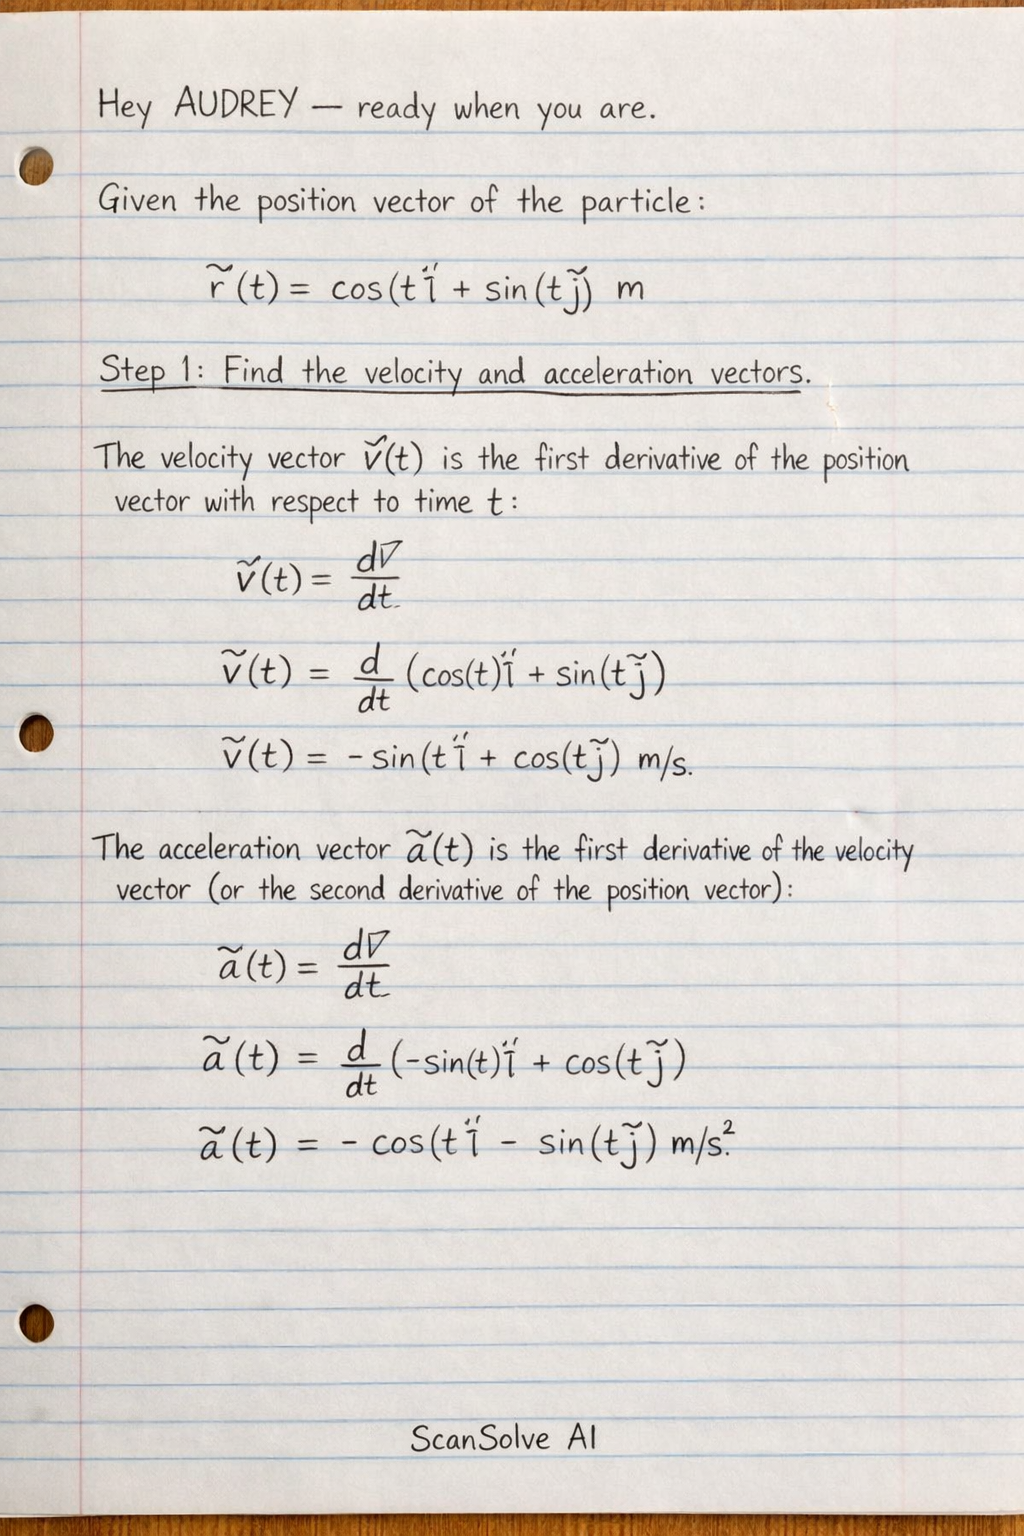 Hey AUDREY — ready when you are.
Given the position vector of the particle:
r̃(t) = cos(t ï + sin(t j̃) m
Step 1: Find the velocity and acceleration vectors.
The velocity vector ṽ(t) is the first derivative of the position
vector with respect to time t:
ṽ(t) = d∇/dt
ṽ(t) = d/dt (cos(t)ï + sin(t j̃)
ṽ(t) = -sin(t ï + cos(t j̃) m/s.
The acceleration vector ã(t) is the first derivative of the velocity
vector (or the second derivative of the position vector):
ã(t) = d∇/dt
ã(t) = d/dt (-sin(t)ï + cos(t j̃)
ã(t) = - cos(t ï - sin(t j̃) m/s².
ScanSolve AI